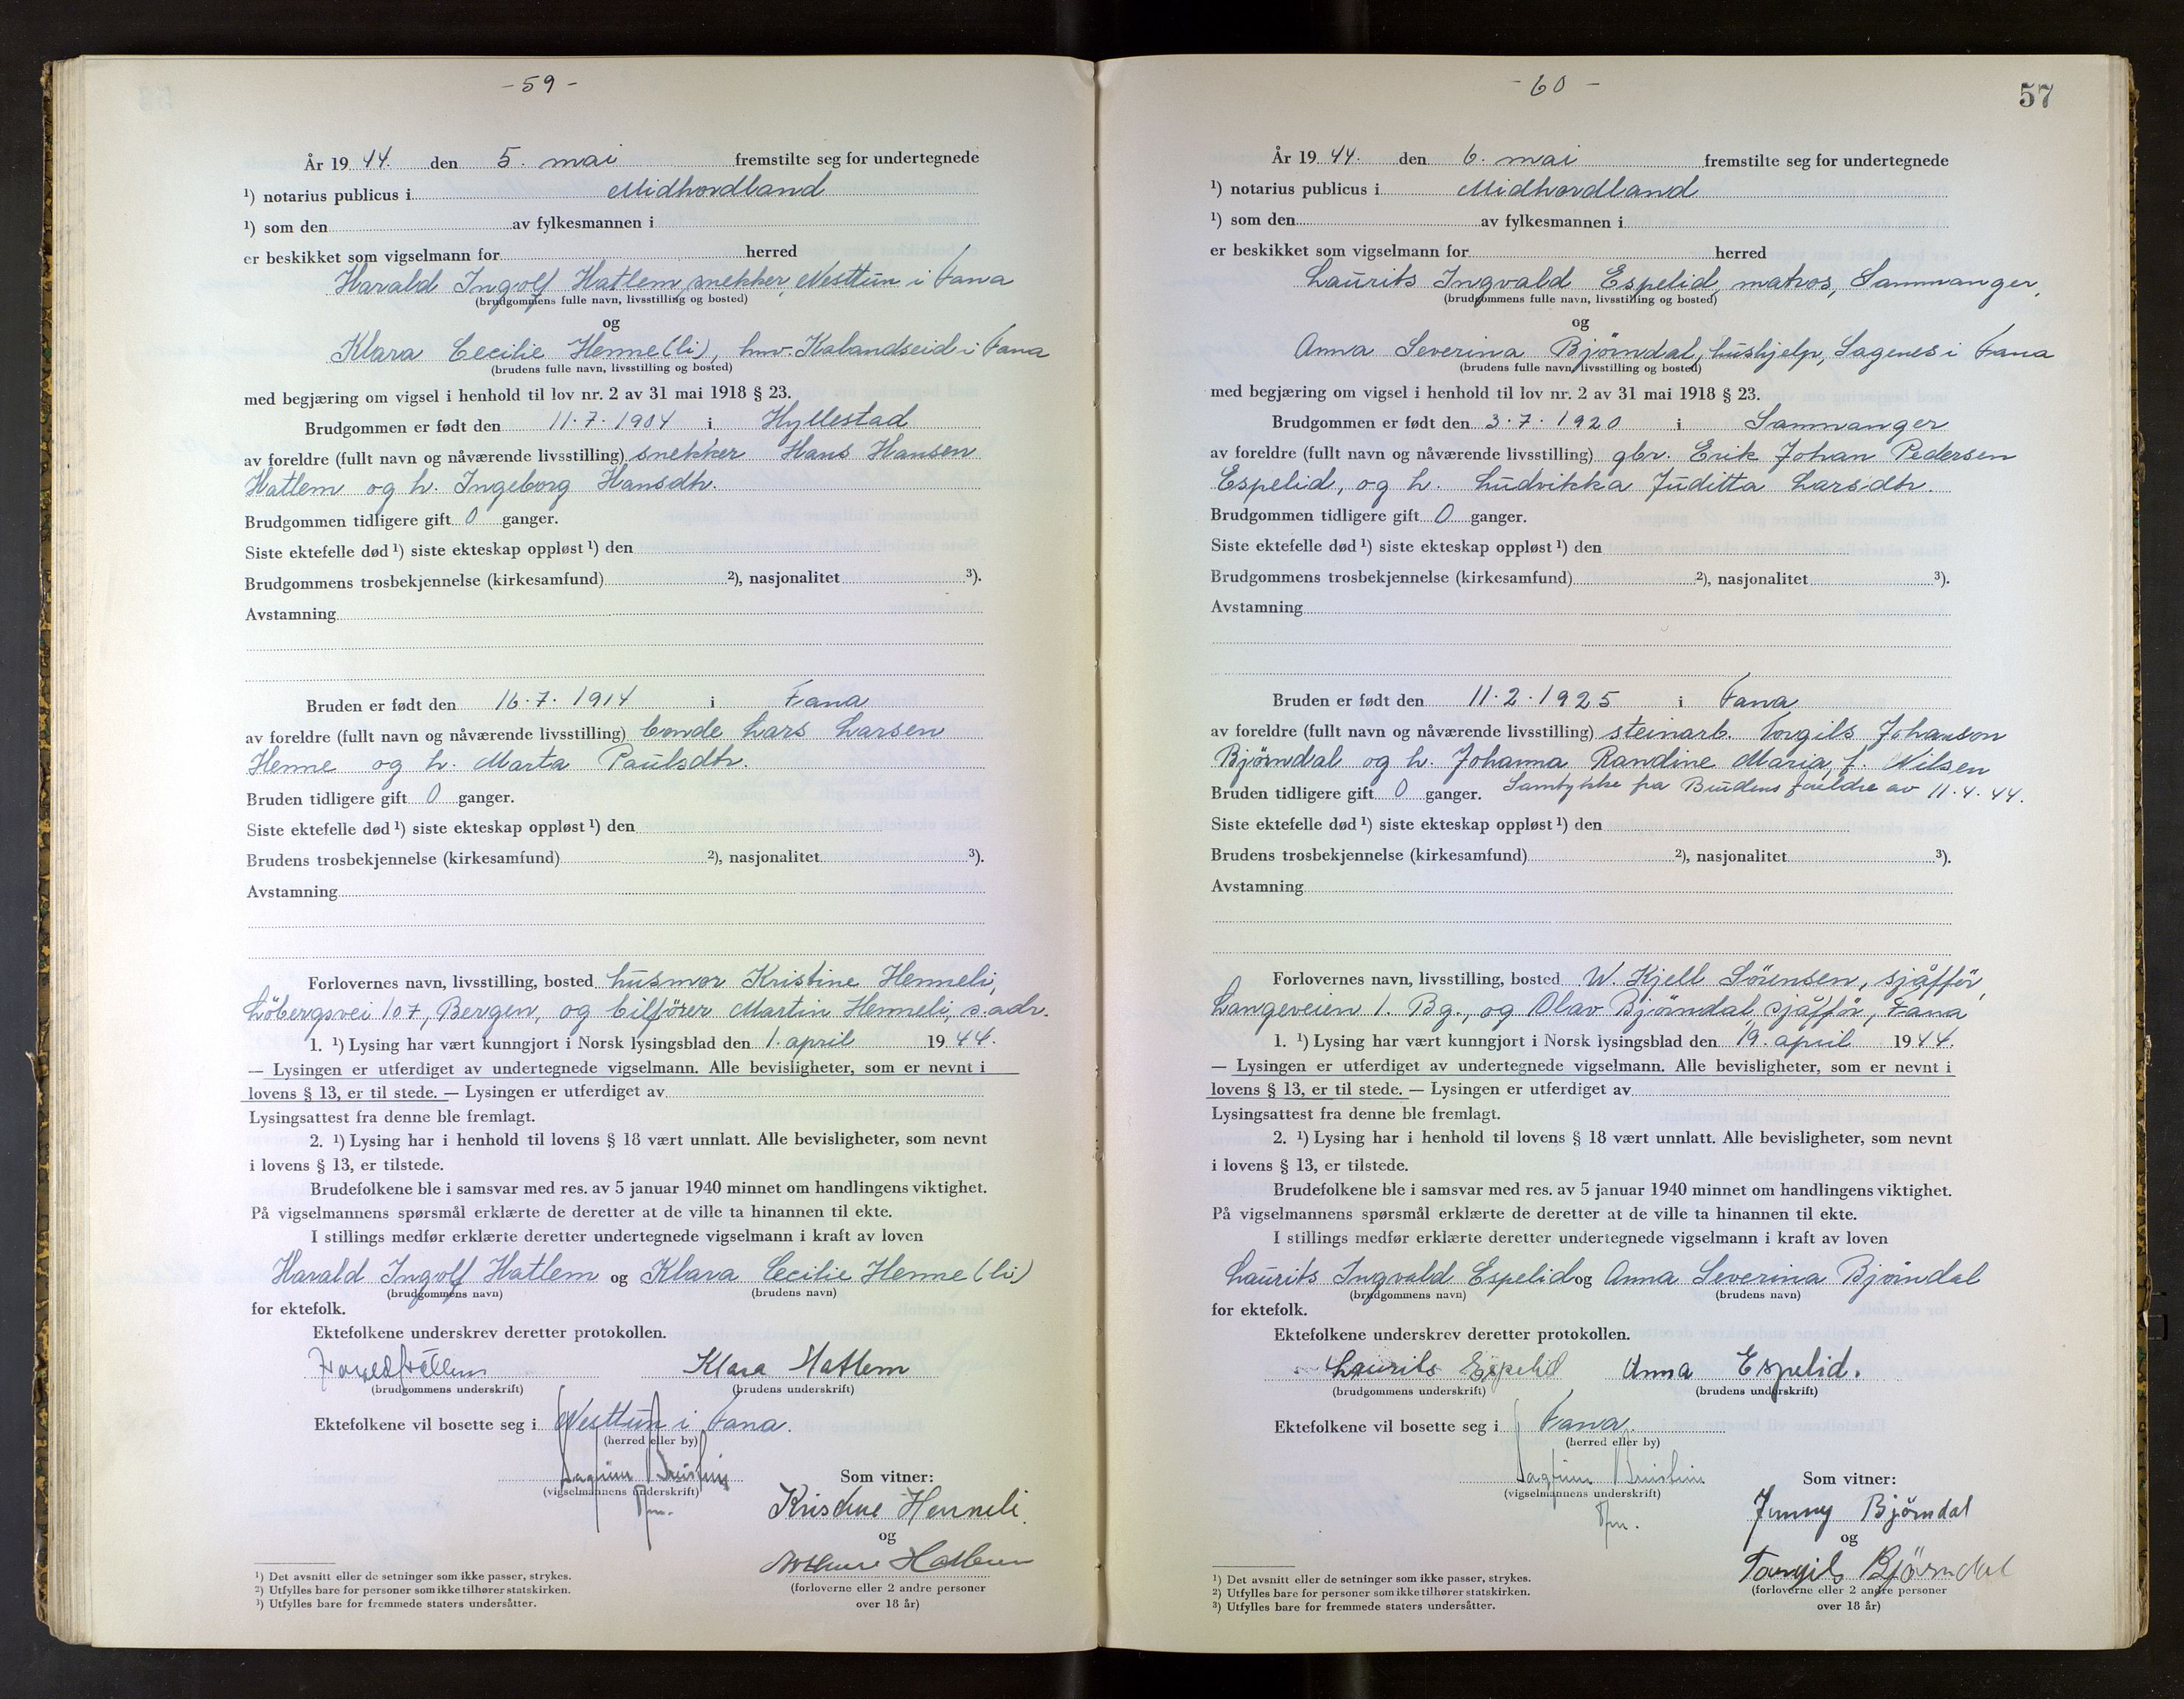 - 59 -
År 19 44. den 5. mai fremstilte seg for undertegnede
¹) notarius publicus i Midhordland
¹) som den av fylkesmannen i
er beskikket som vigselmann for herred
Harald Ingolf Hatlem, snekker, Nesttun i Fana
(brudgommens fulle navn, livsstilling og bosted)
og
Klara Cecilie Henne(li), hmv. Kalandseid i Fana
(brudens fulle navn, livsstilling og bosted)
med begjæring om vigsel i henhold til lov nr. 2 av 31 mai 1918 § 23.
Brudgommen er født den 11.7.1904 i Hyllestad
av foreldre (fullt navn og nåværende livsstilling) snekker Hans Hansen
Hatlem og h. Ingeborg Hansdtr.
Brudgommen tidligere gift 0 ganger.
Siste ektefelle død ¹) siste ekteskap oppløst ¹) den
Brudgommens trosbekjennelse (kirkesamfund) ²), nasjonalitet ³).
Avstamning
Bruden er født den 16.7.1914 i Fana
av foreldre (fullt navn og nåværende livsstilling) bonde Lars Larsen
Henne og h. Marta Paulsdtr.
Bruden tidligere gift 0 ganger.
Siste ektefelle død ¹) siste ekteskap oppløst ¹) den
Brudens trosbekjennelse (kirkesamfund) ²), nasjonalitet ³).
Avstamning
Forlovernes navn, livsstilling, bosted husmor Kristine Henneli,
Löbergsvei 107, Bergen, og bilförer Martin Henneli, s. adr.
1. ¹) Lysing har vært kunngjort i Norsk lysingsblad den 1. april 19 44.
— Lysingen er utferdiget av undertegnede vigselmann. Alle bevisligheter, som er nevnt i
lovens § 13, er til stede. — Lysingen er utferdiget av
Lysingsattest fra denne ble fremlagt.
2. ¹) Lysing har i henhold til lovens § 18 vært unnlatt. Alle bevisligheter, som nevnt
i lovens § 13, er tilstede.
Brudefolkene ble i samsvar med res. av 5 januar 1940 minnet om handlingens viktighet.
På vigselmannens spørsmål erklærte de deretter at de ville ta hinannen til ekte.
I stillings medfør erklærte deretter undertegnede vigselmann i kraft av loven
Harald Ingolf Hatlem og Klara Cecilie Henne(li)
(brudgommens navn) (brudens navn)
for ektefolk.
Ektefolkene underskrev deretter protokollen.
Klara Hatlem
(brudgommens underskrift) (brudens underskrift)
Ektefolkene vil bosette seg i Nesttun i Fana.
(herred eller by)
(vigselmannens underskrift)
Som vitner:
Kristine Henneli
og
Hatlem
(forloverne eller 2 andre personer
over 18 år)
¹) Det avsnitt eller de setninger som ikke passer, strykes.
²) Utfylles bare for personer som ikke tilhører statskirken.
³) Utfylles bare for fremmede staters undersåtter.
- 60 -
57
År 19 44. den 6. mai fremstilte seg for undertegnede
¹) notarius publicus i Midhordland
¹) som den av fylkesmannen i
er beskikket som vigselmann for herred
Laurits Ingvald Espelid, matros, Samnanger,
(brudgommens fulle navn, livsstilling og bosted)
og
Anna Severina Bjørndal, hushjelp, Sagenes i Fana
(brudens fulle navn, livsstilling og bosted)
med begjæring om vigsel i henhold til lov nr. 2 av 31 mai 1918 § 23.
Brudgommen er født den 3.7.1920 i Samnanger
av foreldre (fullt navn og nåværende livsstilling) gbr. Erik Johan Pedersen
Espelid, og h. Ludvikka Juditta Larsdtr.
Brudgommen tidligere gift 0 ganger.
Siste ektefelle død ¹) siste ekteskap oppløst ¹) den
Brudgommens trosbekjennelse (kirkesamfund) ²), nasjonalitet ³).
Avstamning
Bruden er født den 11.2.1925 i Fana
av foreldre (fullt navn og nåværende livsstilling) steinarb. Torgils Johanson
Bjørndal og h. Johanna Randine Maria, f. Nilsen
Bruden tidligere gift 0 ganger. Samtykke fra Brudens foreldre av 11.4.44.
Siste ektefelle død ¹) siste ekteskap oppløst ¹) den
Brudens trosbekjennelse (kirkesamfund) ²), nasjonalitet ³).
Avstamning
Forlovernes navn, livsstilling, bosted W. Kjell Sörensen, sjåfför,
Langeveien 1. Bg., og Olav Bjørndal, sjåffør, Fana
1. ¹) Lysing har vært kunngjort i Norsk lysingsblad den 19. april 19 44.
— Lysingen er utferdiget av undertegnede vigselmann. Alle bevisligheter, som er nevnt i
lovens § 13, er til stede. — Lysingen er utferdiget av
Lysingsattest fra denne ble fremlagt.
2. ¹) Lysing har i henhold til lovens § 18 vært unnlatt. Alle bevisligheter, som nevnt
i lovens § 13, er tilstede.
Brudefolkene ble i samsvar med res. av 5 januar 1940 minnet om handlingens viktighet.
På vigselmannens spørsmål erklærte de deretter at de ville ta hinannen til ekte.
I stillings medfør erklærte deretter undertegnede vigselmann i kraft av loven
Laurits Ingvald Espelid og Anna Severina Bjørndal
(brudgommens navn) (brudens navn)
for ektefolk.
Ektefolkene underskrev deretter protokollen.
Laurits Espelid Anna Espelid.
(brudgommens underskrift) (brudens underskrift)
Ektefolkene vil bosette seg i Fana.
(herred eller by)
(vigselmannens underskrift)
Som vitner:
Jenny Bjørndal
og
Torgils Bjørndal
(forloverne eller 2 andre personer
over 18 år)
¹) Det avsnitt eller de setninger som ikke passer, strykes.
²) Utfylles bare for personer som ikke tilhører statskirken.
³) Utfylles bare for fremmede staters undersåtter.